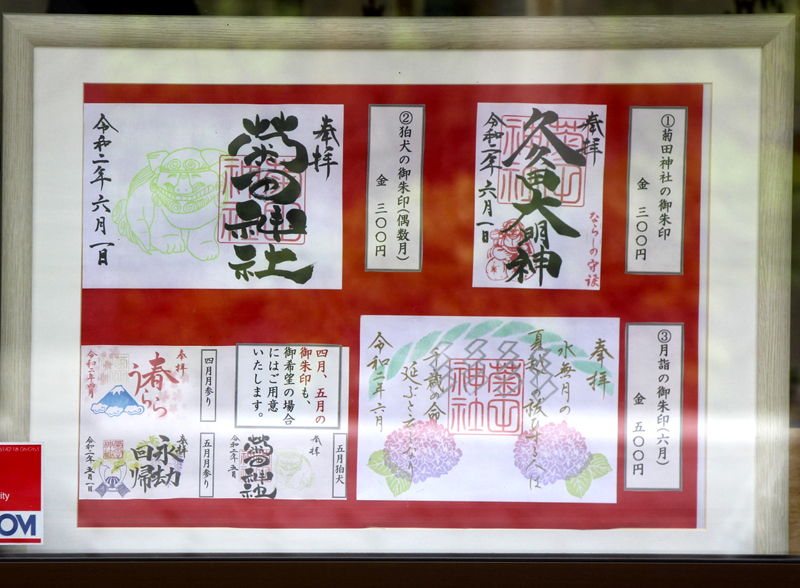 ①菊田神社の御朱印
金 三〇〇円
奉拝
久久田大明神
令和二年六月一日
ならしの守護
②狛犬の御朱印(偶数月)
金 三〇〇円
奉拝
菊田神社
令和二年六月一日
③月詣の御朱印(六月)
金 五〇〇円
奉拝
水無月の
夏越の祓する人は
千歳の命
延ぶと云ふなり
令和二年六月
菊田
神社
四月、五月の
御朱印も、
御希望の場合
にはご用意
いたします。
四月月参り
奉拝
春
うらら
五月狛犬
奉拝
菊田神社
五月月参り
奉拝
永劫
回帰
OM